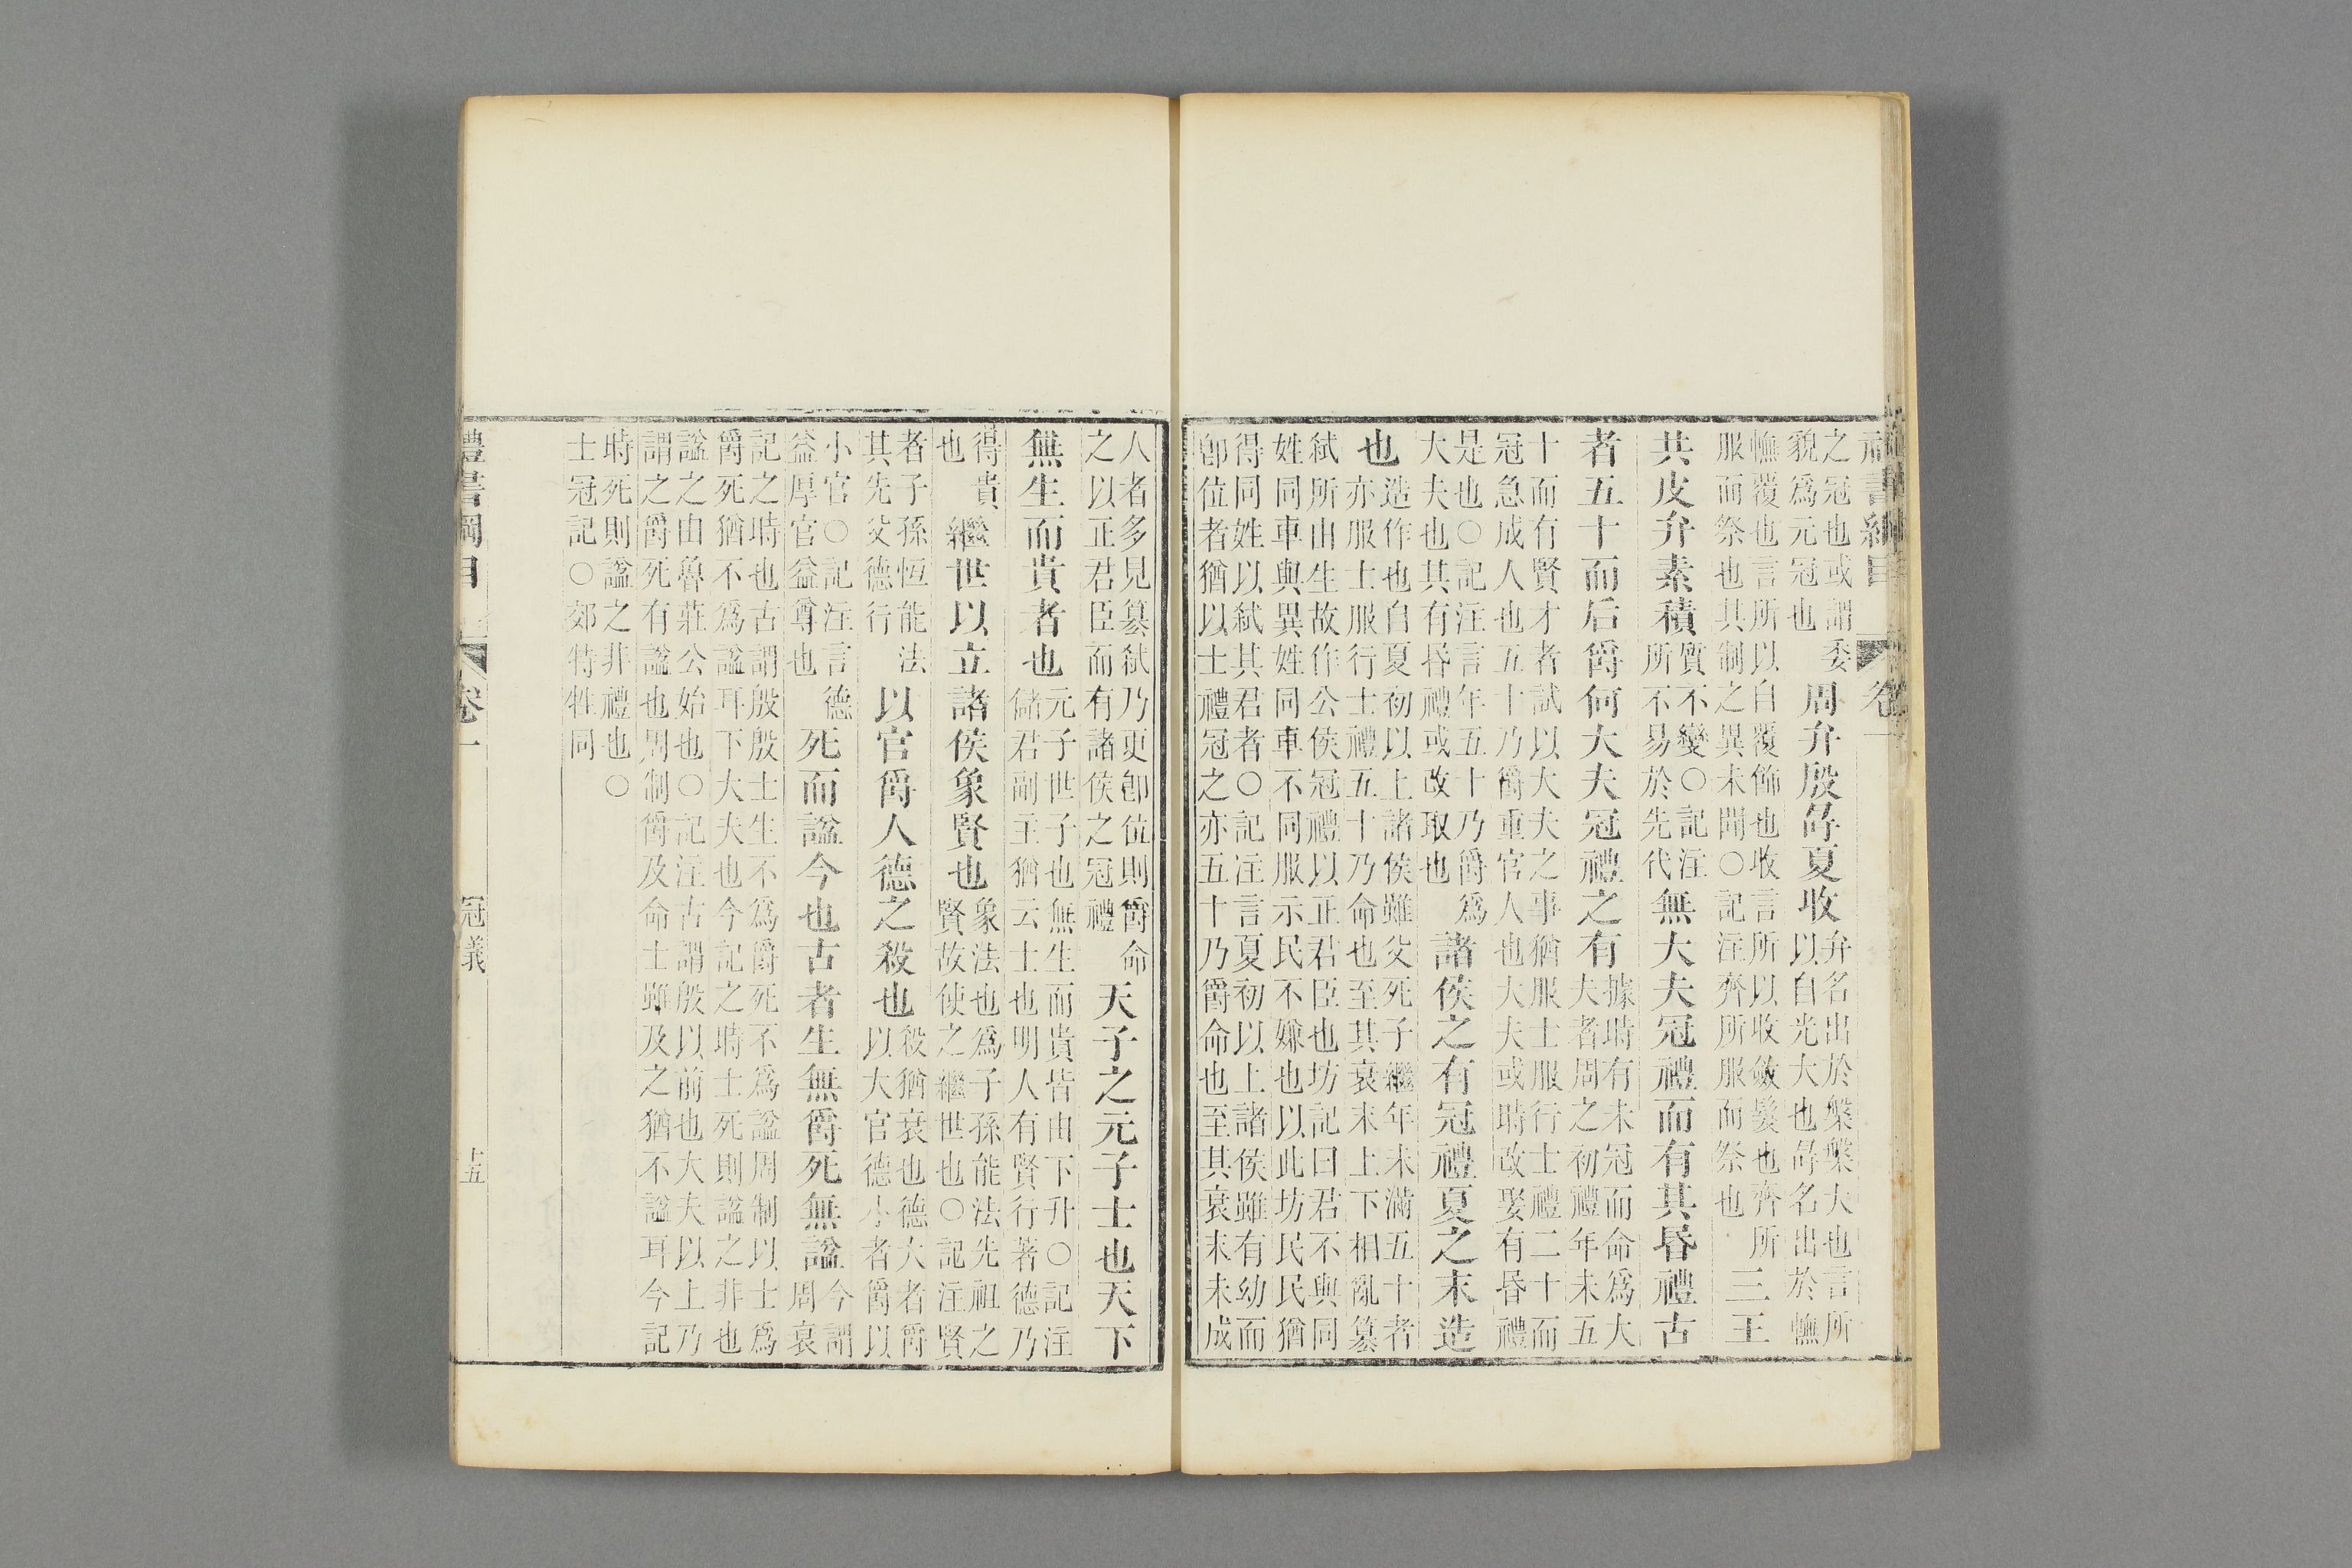 禮書綱目 卷一
之冠也或謂委貌爲元冠也周弁殷冔夏收弁名出於槃槃大也言所以自光大也冔名出於幠
幠覆也言所以自覆飾也收言所以收斂髮也齊所服而祭也其制之異未聞○記注齊所服而祭也三王
共皮弁素積質不變○記注所不易於先代無大夫冠禮而有其昏禮古
者五十而后爵何大夫冠禮之有據時有未冠而命爲大夫者周之初禮年未五
十而有賢才者試以大夫之事猶服士服行士禮二十而冠急成人也五十乃爵重官人也大夫或時改娶有昏禮
是也○記注言年五十乃爵爲大夫也其有昏禮或改取也諸侯之有冠禮夏之末造
也造作也自夏初以上諸侯雖父死子繼年未滿五十者亦服士服行士禮五十乃命也至其衰末上下相亂篡
弒所由生故作公侯冠禮以正君臣也坊記曰君不與同姓同車與異姓同車不同服示民不嫌也以此坊民民猶
得同姓以弒其君者○記注言夏初以上諸侯雖有幼而卽位者猶以士禮冠之亦五十乃爵命也至其衰末未成
人者多見篡弒乃更卽位則爵命之以正君臣而有諸侯之冠禮天子之元子士也天下
無生而貴者也元子世子也無生而貴皆由下升○記注儲君副主猶云士也明人有賢行著德乃
得貴也繼世以立諸侯象賢也象法也爲子孫能法先祖之賢故使之繼世也○記注賢
者子孫恆能法其先父德行以官爵人德之殺也殺猶衰也德大者爵以大官德小者爵以
小官○記注言德益厚官益尊也死而諡今也古者生無爵死無諡今謂周衰
記之時也古謂殷殷士生不爲爵死不爲諡周制以士爲爵死猶不爲諡耳下大夫也今記之時士死則諡之非也
諡之由魯莊公始也○記注古謂殷以前也大夫以上乃謂之爵死有諡也周制爵及命士雖及之猶不諡耳今記
時死則諡之非禮也○士冠記○郊特牲同
禮書綱目 卷一 冠義 十五